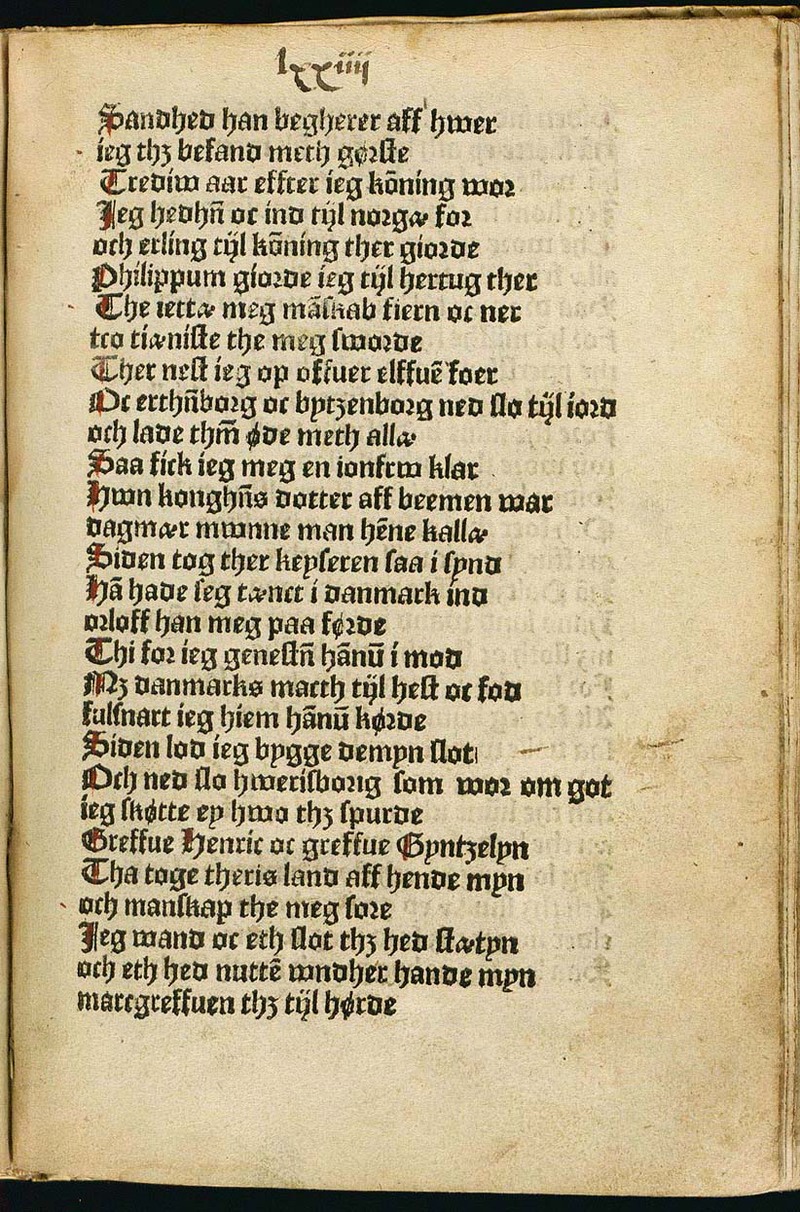 lxxiiij
Sandhed han begherer aff hwer
ieg thꝫ befand meth gørste
Trediw aar effter ieg kōning wor
Jeg hedhn̄ oc ind tijl norgæ for
och erling tijl kōning ther giorde
Philippum giorde ieg tijl hertug ther
The iettæ meg māskab fiern oc ner
tro tiæniste the meg sworde
Ther nest ieg op offuer elffuē foer
Oc erthn̄borg oc bytzenborg ned slo tijl iord
och lade thm̄ øde meth allæ
Saa fick ieg meg en ionfrw klar
Hwn konghn̄s dotter aff beemen war
dagmær mwnne man hēne kallæ
Siden tog ther keyseren saa i synd
Hā hade seg tænct i danmark ind
orloff han meg paa førde
Thi for ieg genestn̄ hānū i mod
Mꝫ danmarks macth tijl hest oc fod
fulsnart ieg hiem hānū kørde
Siden lod ieg bygge demyn slot
Och ned slo hwerisborig som wor om got
ieg skøtte ey hwo thꝫ spurde
Greffue Henric oc greffue Gyntzelyn
Tha toge theris land aff hende myn
och manskap the meg sore
Jeg wand oc eth slot thꝫ hed stætyn
och eth hed nuttē wndher hande myn
marcgreffuen thꝫ tijl hørde